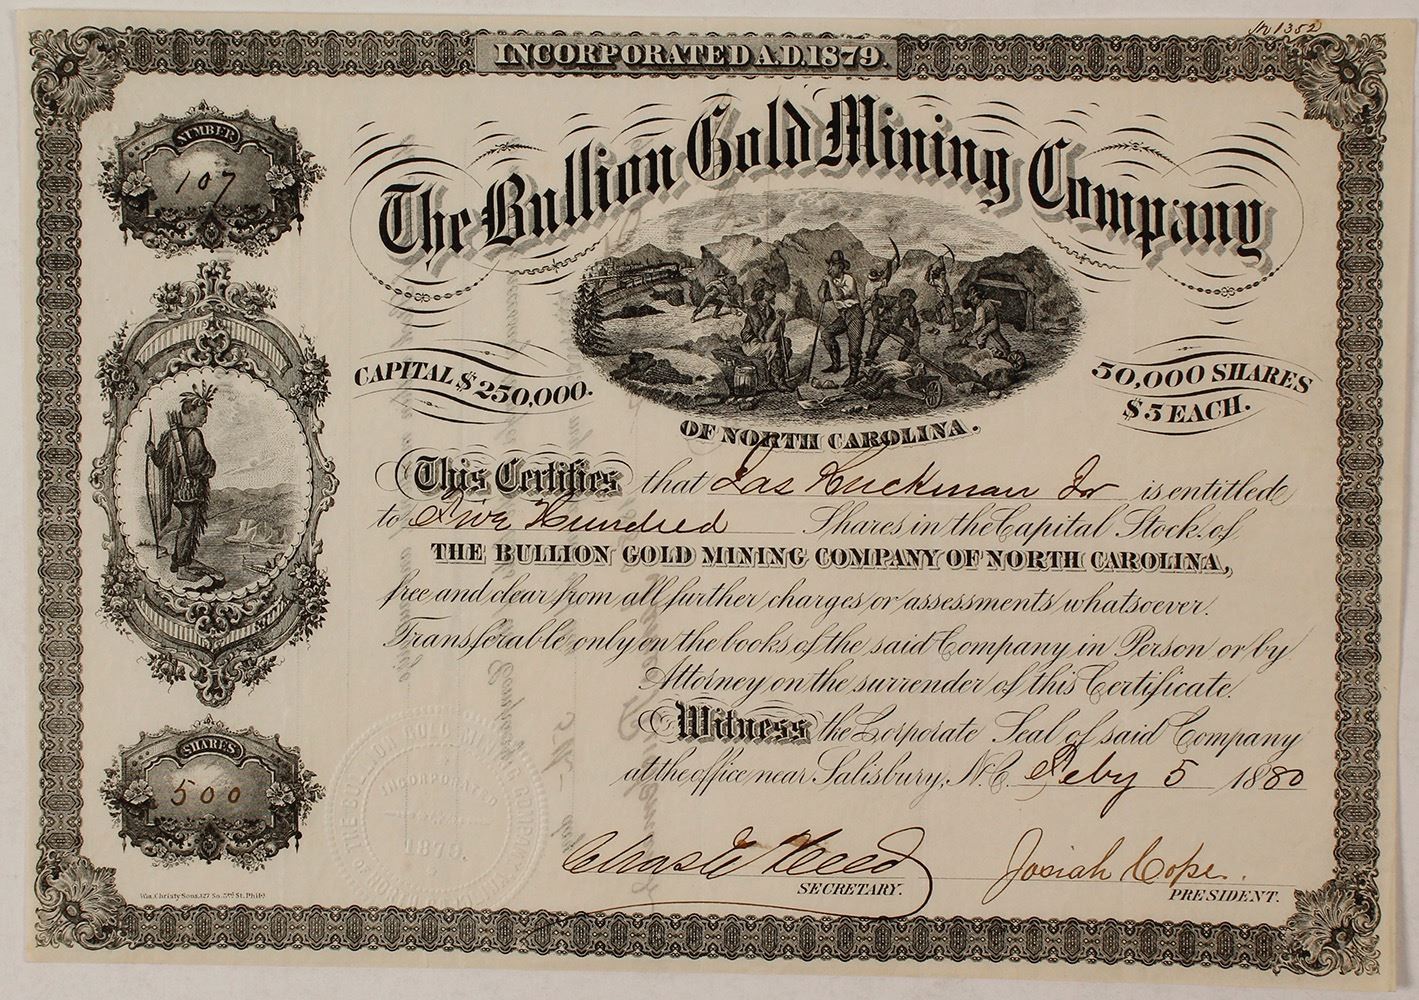 No 1352
INCORPORATED A.D. 1879.
NUMBER
107
The Bullion Gold Mining Company
CAPITAL $250,000.
50,000 SHARES
$5 EACH.
OF NORTH CAROLINA.
This Certifies that Jas Huckman Jr is entitled
to Five Hundred Shares in the Capital Stock of
THE BULLION GOLD MINING COMPANY OF NORTH CAROLINA,
free and clear from all further charges or assessments whatsoever.
Transferable only on the books of the said Company in Person or by
Attorney on the surrender of this Certificate.
Witness the Corporate Seal of said Company
at the office near Salisbury, N.C. Feby 5 1880
SHARES
500
THE BULLION GOLD MINING COMPANY
INCORPORATED
1879.
Chas E Reed
SECRETARY.
Josiah Cope.
PRESIDENT.
Wm. Christy Sons, 127 So. 3rd St. Phila